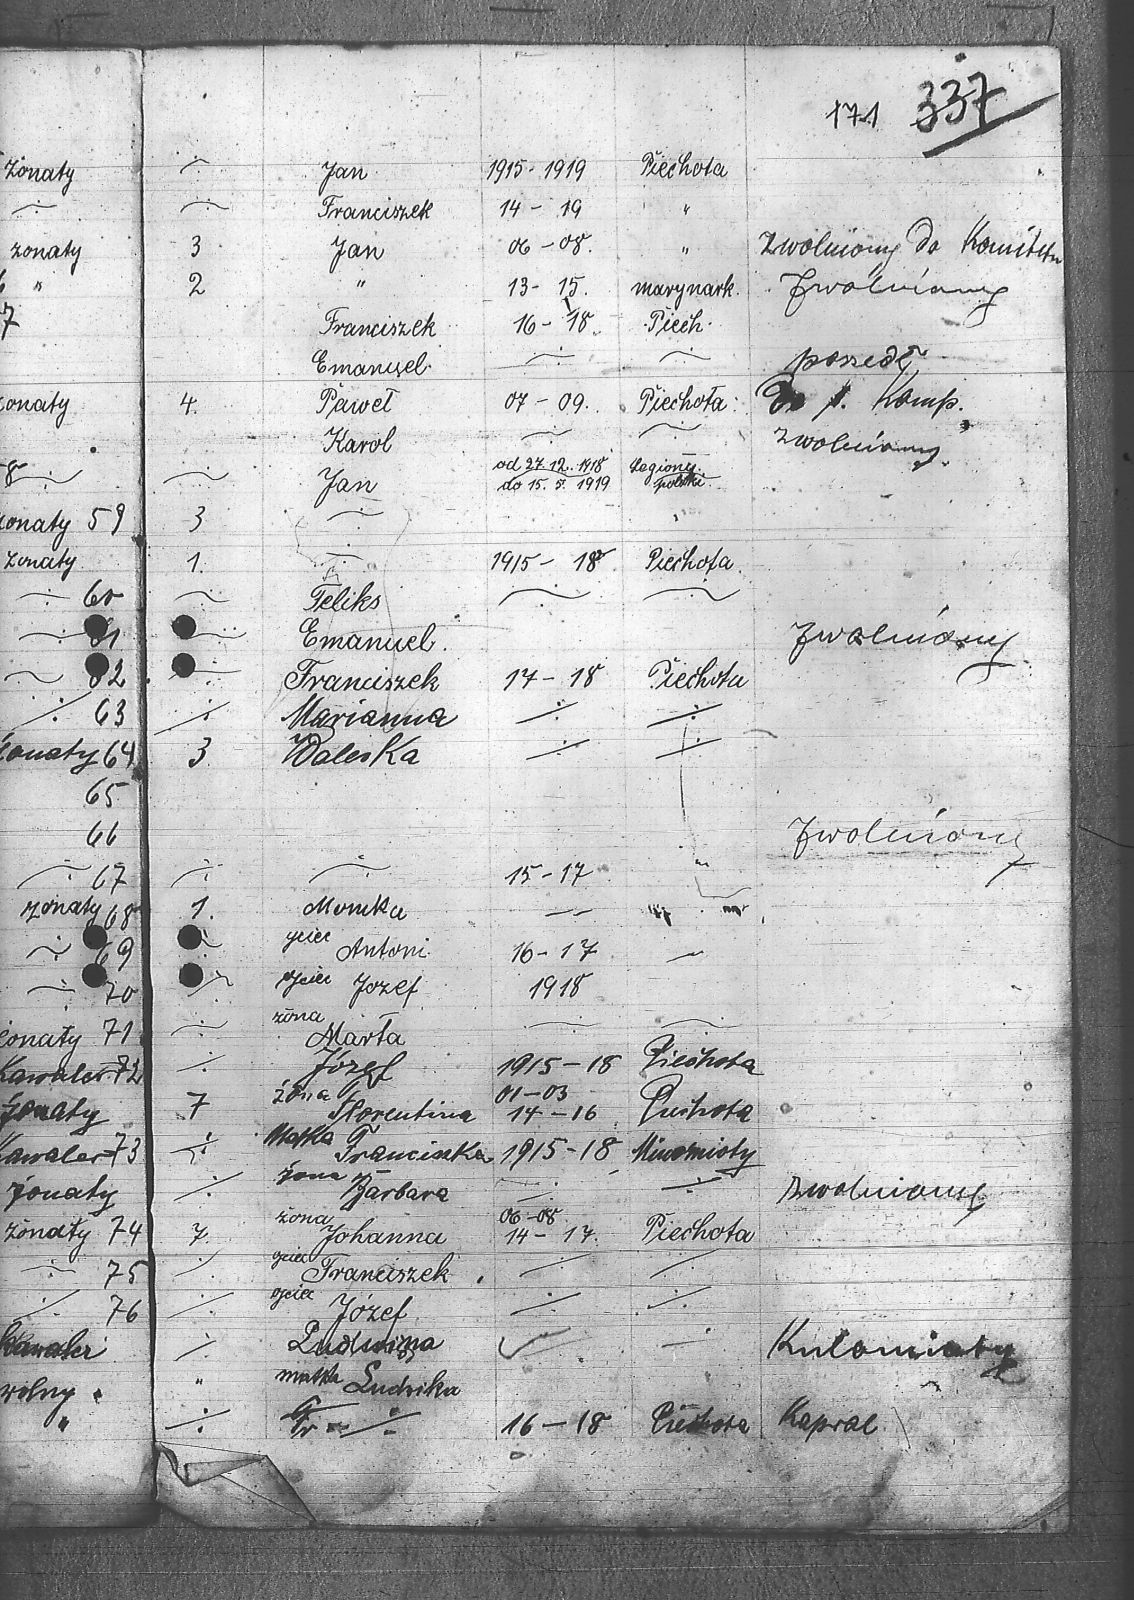 171 337
żonaty Jan 1915-1919 Piechota
Franciszek 14-19 "
żonaty 3 Jan 06-08. " Zwolniony do Komitetu
" 2 " 13-15. marynark. Zwolniony
7 Franciszek 16-18. Piech.
Emanuel. poszedł
żonaty 4. Paweł 07-09. Piechota. Do 1. Komp.
Karol Zwolniony
8 Jan od 27.12.1918 do 15.5.1919 Legiony polski
żonaty 59 3
żonaty 1. 1915-18 Piechota.
60 Feliks
61 Emanuel. Zwolniony
62 Franciszek 17-18 Piechota
63 Marianna
żonaty 64 3 Waleska
65
66 Zwolniony
67 15-17 "
żonaty 68 1. Monika
69 ojciec Antoni 16-17
70 ojciec Jozef 1918
żonaty 71 żona Marta
Kawaler 72 Józef 1915-18 Piechota
żonaty 7 żona Florentina 01-03 14-16 Piechota
Kawaler 73 Matka Franciszka 1915-18 Minomioty
żonaty żona Barbara Zwolniony
żonaty 74 7. żona Johanna 06-08 14-17. Piechota
75 ojciec Franciszek
76 ojciec Józef
Kawaler Ludwina Kulomioty
wolny " matka Ludvika
" 16-18 Piechota Kapral